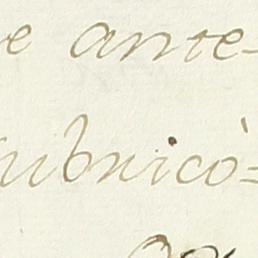 e ante-
ubricò=